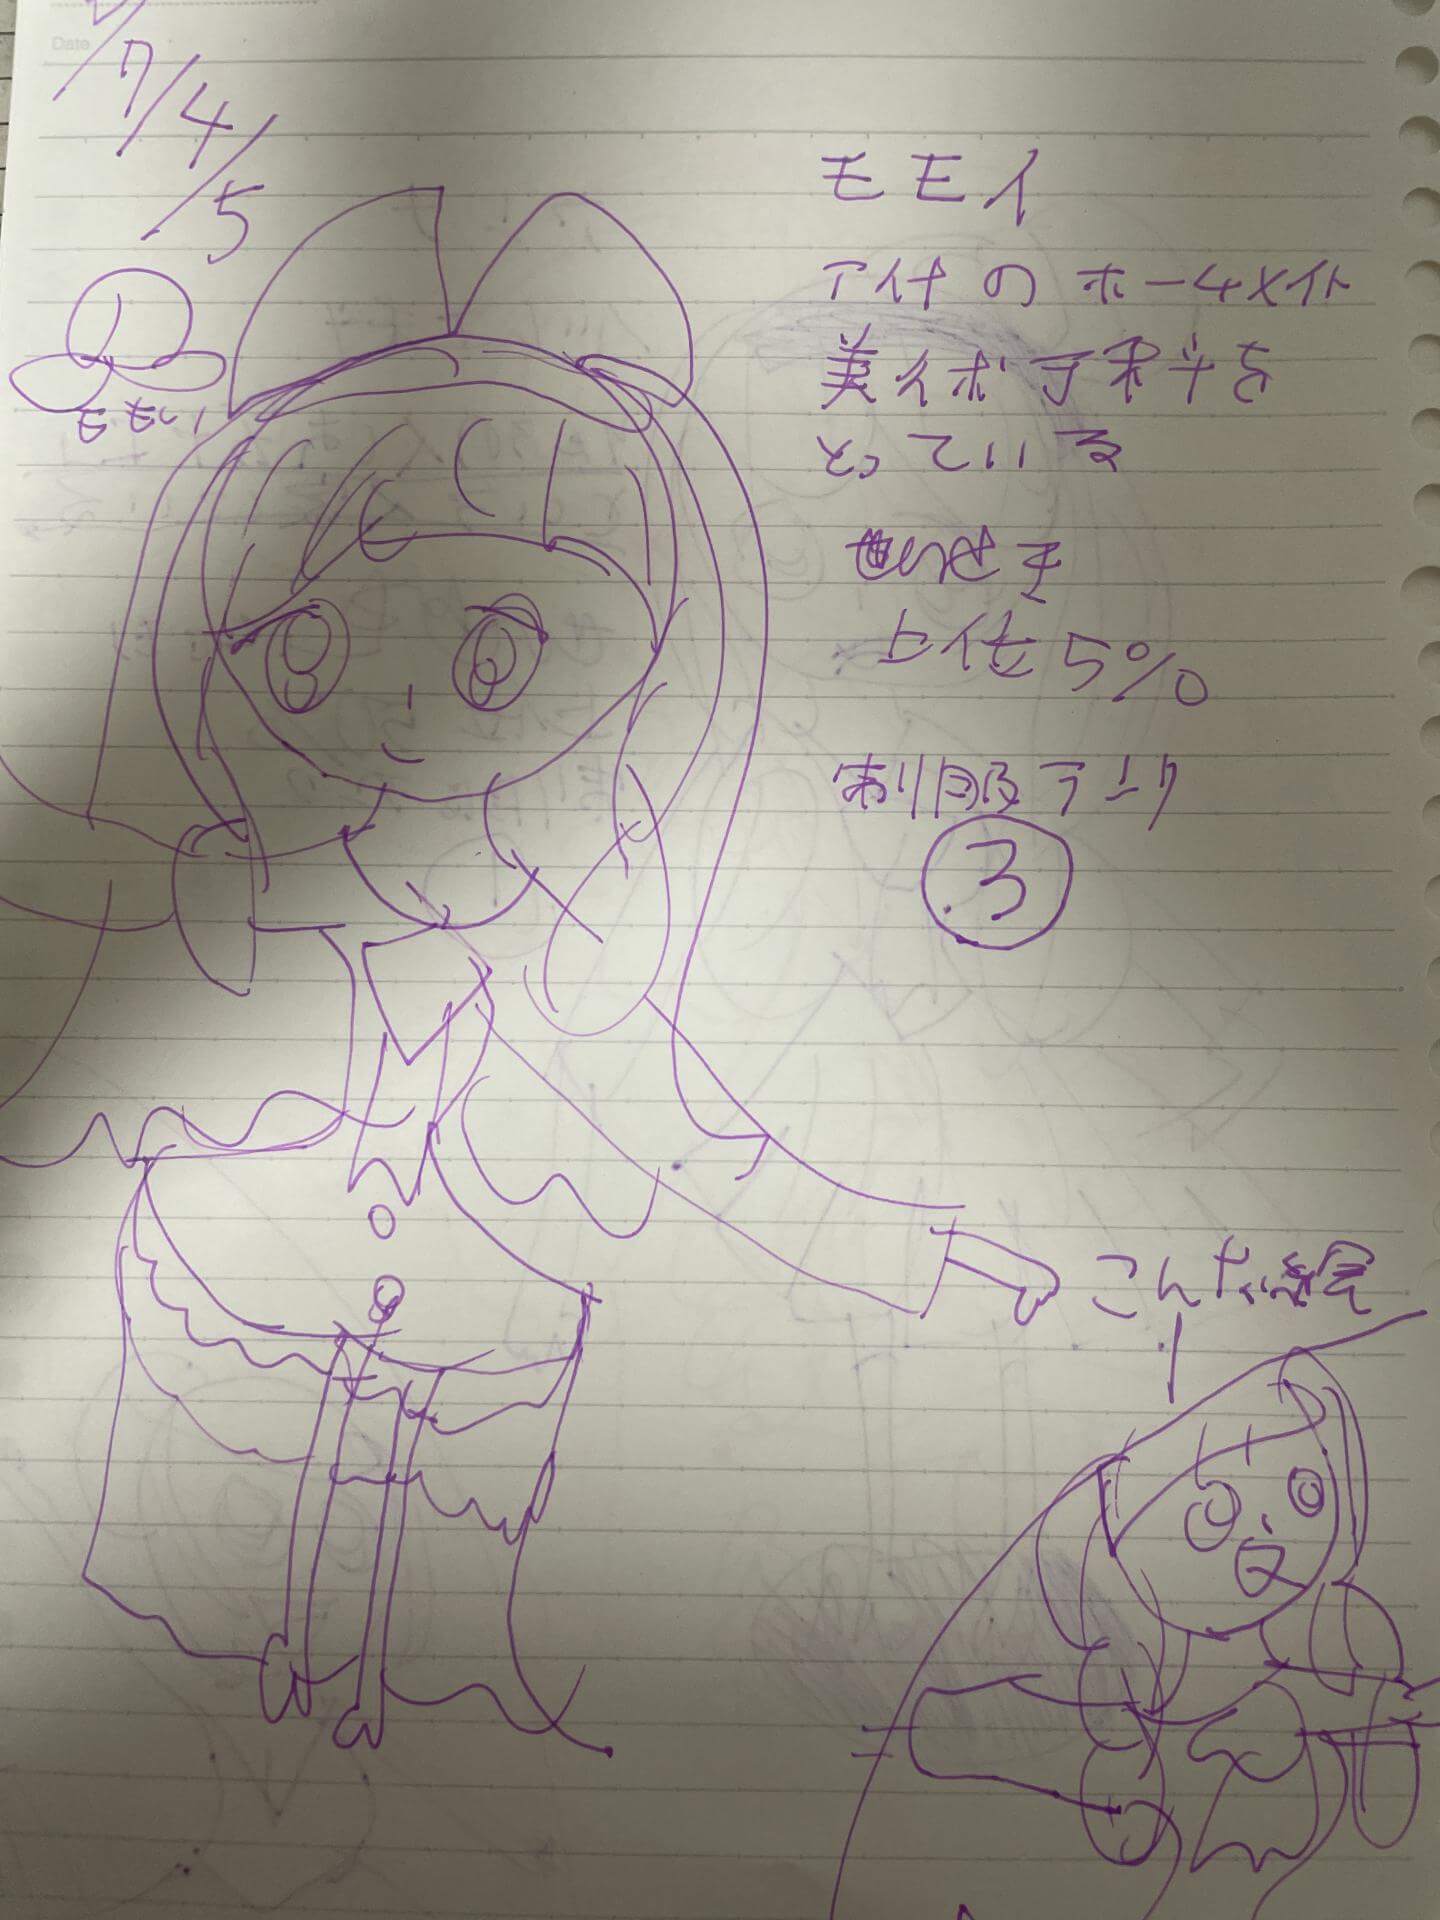 Date
7/4/5
ももい
モモイ
アイナのホームメイト
美イボア
とっている
せいせき
上イ位5%
制服アニリ
③
こんな